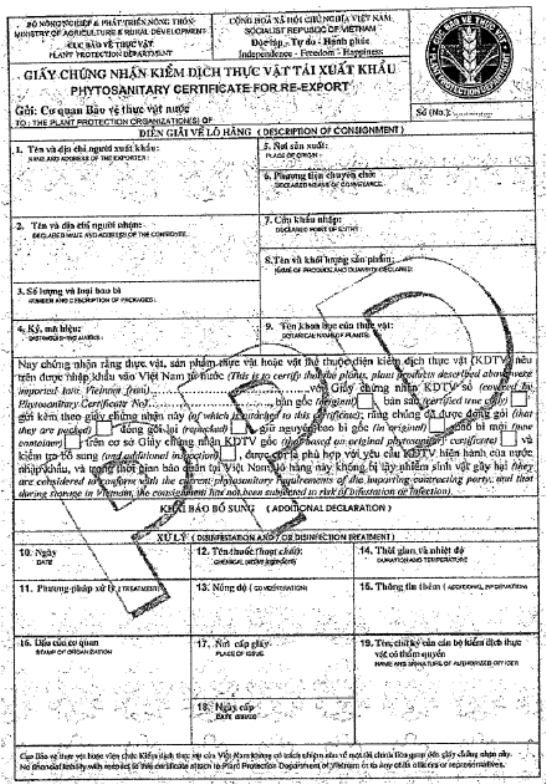 BỘ NÔNG NGHIỆP & PHÁT TRIỂN NÔNG THÔN
MINISTRY OF AGRICULTURE & RURAL DEVELOPMENT
CỤC BẢO VỆ THỰC VẬT
PLANT PROTECTION DEPARTMENT
CỘNG HOÀ XÃ HỘI CHỦ NGHĨA VIỆT NAM
SOCIALIST REPUBLIC OF VIETNAM
Độc lập - Tự do - Hạnh phúc
Independence - Freedom - Happiness
BẢO VỆ THỰC VẬT
PLANT PROTECTION DEPARTMENT
GIẤY CHỨNG NHẬN KIỂM DỊCH THỰC VẬT TÁI XUẤT KHẨU
PHYTOSANITARY CERTIFICATE FOR RE-EXPORT
Gửi: Cơ quan Bảo vệ thực vật nước
TO: THE PLANT PROTECTION ORGANIZATION(S) OF
Số (No.):
DIỄN GIẢI VỀ LÔ HÀNG (DESCRIPTION OF CONSIGNMENT)
1. Tên và địa chỉ người xuất khẩu:
NAME AND ADDRESS OF THE EXPORTER:
5. Nơi sản xuất:
PLACE OF ORIGIN:
6. Phương tiện chuyên chở:
DECLARED MEANS OF CONVEYANCE:
2. Tên và địa chỉ người nhận:
DECLARED NAME AND ADDRESS OF THE CONSIGNEE:
7. Cửa khẩu nhập:
DECLARED POINT OF ENTRY:
8. Tên và khối lượng sản phẩm:
NAME OF PRODUCE AND QUANTITY DECLARED:
3. Số lượng và loại bao bì
NUMBER AND DESCRIPTION OF PACKAGES:
4. Ký, mã hiệu:
DISTINGUISHING MARKS:
9. Tên khoa học của thực vật:
BOTANICAL NAME OF PLANTS:
Nay chứng nhận rằng thực vật, sản phẩm thực vật hoặc vật thể thuộc diện kiểm dịch thực vật (KDTV) nêu
trên được nhập khẩu vào Việt Nam từ nước (This is to certify that the plants, plant products described above were
imported into Vietnam from) với Giấy chứng nhận KDTV số (covered by
Phytosanitary Certificate No) , bản gốc (original) bản sao (certified true copy)
gửi kèm theo giấy chứng nhận này (of which is attached to this certificate); rằng chúng đã được đóng gói (that
they are packed) đóng gói lại (repacked) giữ nguyên bao bì gốc (in original) bao bì mới (new
container) trên cơ sở Giấy chứng nhận KDTV gốc (that based on original phytosanitary certificate) và
kiểm tra bổ sung (and additional inspection) , được coi là phù hợp với yêu cầu KDTV hiện hành của nước
nhập khẩu, và trong thời gian bảo quản tại Việt Nam lô hàng này không bị lây nhiễm sinh vật gây hại (they
are considered to conform with the current phytosanitary requirements of the importing contracting party, and that
during storage in Vietnam, the consignment has not been subjected to risk of infestation or infection).
KHAI BÁO BỔ SUNG (ADDITIONAL DECLARATION)
XỬ LÝ (DISINFESTATION AND / OR DISINFECTION TREATMENT)
10. Ngày
DATE
12. Tên thuốc (hoạt chất):
CHEMICAL (active ingredient)
14. Thời gian và nhiệt độ
DURATION AND TEMPERATURE
11. Phương pháp xử lý (TREATMENT)
13. Nồng độ (CONCENTRATION)
15. Thông tin thêm (ADDITIONAL INFORMATION)
16. Dấu của cơ quan
STAMP OF ORGANIZATION
17. Nơi cấp giấy
PLACE OF ISSUE
19. Tên, chữ ký của cán bộ kiểm dịch thực
vật có thẩm quyền
NAME AND SIGNATURE OF AUTHORIZED OFFICER
18. Ngày cấp
DATE ISSUED
Cục Bảo vệ thực vật hoặc viên chức Kiểm dịch thực vật của Việt Nam không có trách nhiệm nào về mặt tài chính liên quan đến giấy chứng nhận này.
No financial liability with respect to this certificate attach to Plant Protection Department of Vietnam or to any of its officers or representatives.